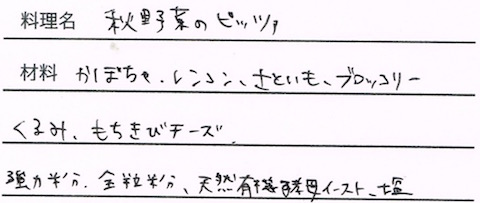 料理名 秋野菜のピッツァ
材料 かぼちゃ、レンコン、さといも、ブロッコリー
くるみ、もちきびチーズ
強力粉、全粒粉、天然有機酵母イースト、塩